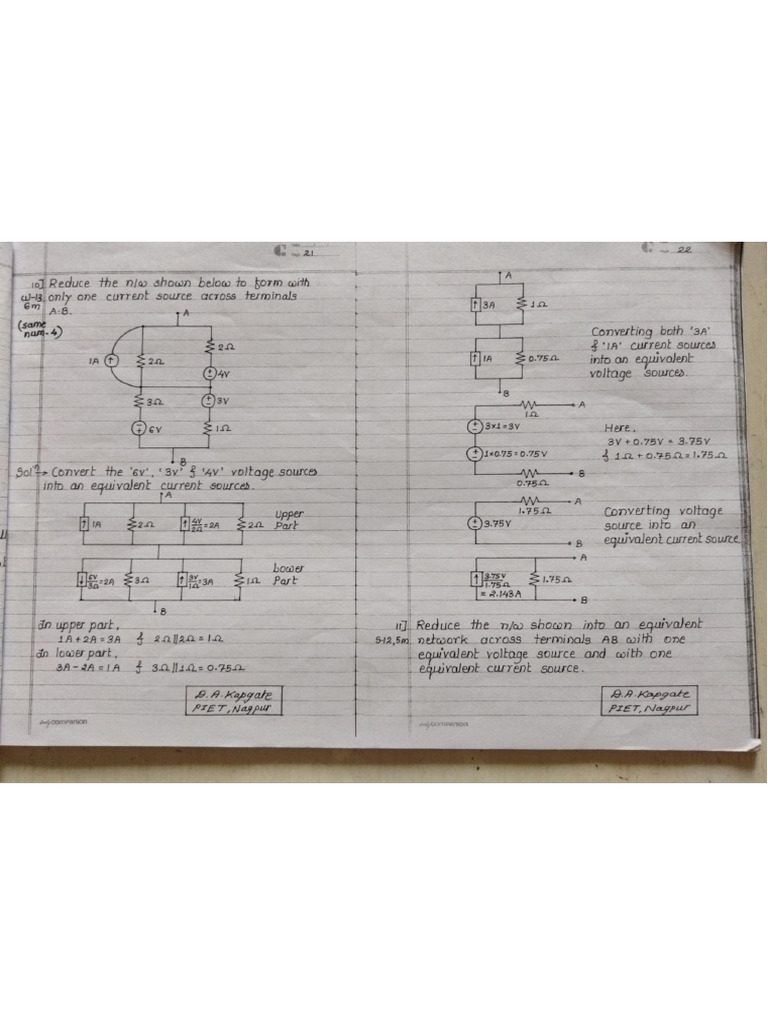 21
10] Reduce the n/w shown below to form with
W-13, only one current source across terminals
6m A-B.
(same
num-4)
A
1A
2Ω
2Ω
4V
3Ω
3V
6V
1Ω
B
Solⁿ→ Convert the '6V', '3V' & '4V' voltage sources
into an equivalent current sources.
A
1A
2Ω
4V/2Ω=2A
2Ω
Upper
Part
6V/3Ω=2A
3Ω
3V/1Ω=3A
1Ω
Lower
Part
B
In upper part,
1A+2A=3A & 2Ω||2Ω=1Ω
In lower part,
3A-2A=1A & 3Ω||1Ω=0.75Ω
D.A.Kapgate
PIET, Nagpur
companion
22
A
3A
1Ω
1A
0.75Ω
B
Converting both '3A'
& '1A' current sources
into an equivalent
voltage sources.
1Ω
A
3x1=3V
1x0.75=0.75V
B
0.75Ω
Here,
3V+0.75V=3.75V
& 1Ω+0.75Ω=1.75Ω
1.75Ω
A
3.75V
B
Converting voltage
source into an
equivalent current source
A
3.75V/1.75Ω
=2.143A
1.75Ω
B
11] Reduce the n/w shown into an equivalent
S-12,5m network across terminals AB with one
equivalent voltage source and with one
equivalent current source.
D.A.Kapgate
PIET, Nagpur
companion